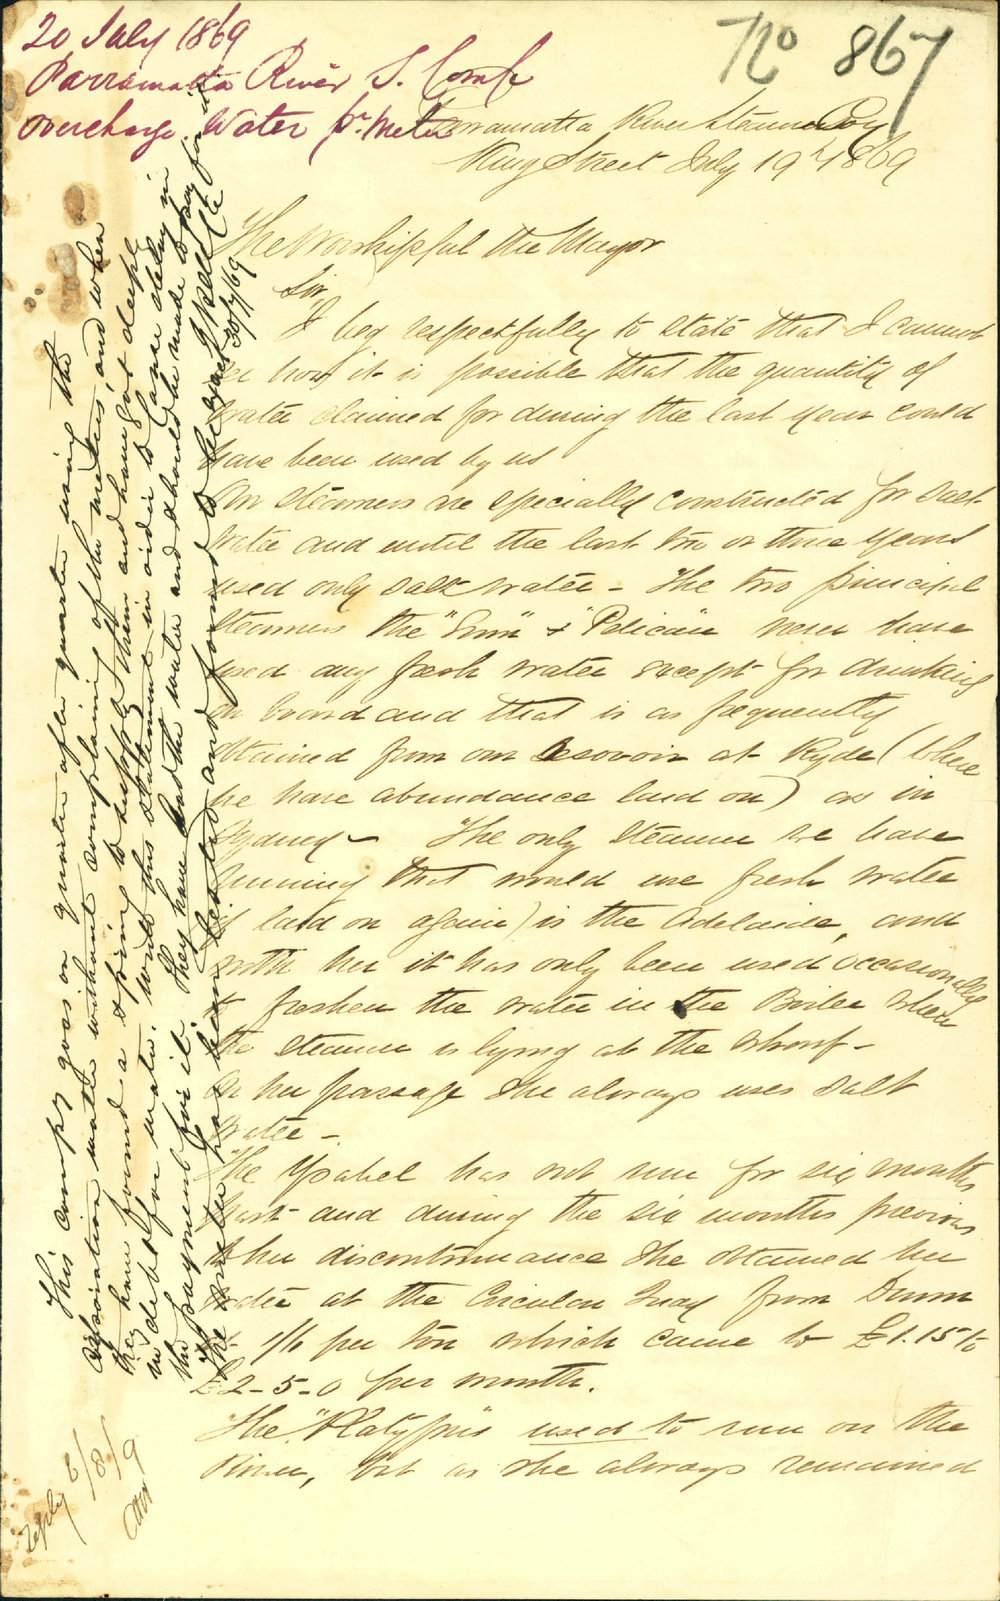 20 July 1869
Parramatta River S. Compe
Overcharge. Water pr. Meter
No 867
Parramatta River Steam Coy
King Street July 19th 1869
The Worshipful the Mayor
Sir,
I beg respectfully to state that I cannot
see how it is possible that the quantity of
water claimed for during the last year could
have been used by us
Our steamers are specially constructed for salt
water and until the last two or three years
used only salt water - The two principal
steamers the "Emu" & "Pelican" never have
used any fresh water except for drinking
on board and that is as frequently
obtained from our Resovoir at Ryde (where
we have abundance laid on) as in
Sydney - The only steamer we have
running that would use fresh water
(if laid on again) is the Adelaide, and
with her it has only been used occasionally
to freshen the water in the Boiler when
the steamer is lying at the Wharf -
On her passage she always uses salt
water -
The Ysabel has not run for six months
past and during the six months previous
to her discontinuance she obtained her
water at the Circular Quay from Dunn
at 1/6 per ton which came to £1.15 to
£2-5-0 per month.
The "Platypus" used to run on the
River, but as she always remained
This compy goes on quarter after quarter using the
Corporation water without complaining of the meters, and when
they have found a spring to supply them and have got deeply
in debt for water. write this statement in order to cause delay in
the payment for it. They have had the water and should be made to pay for it
The meter has been tested and found to be correct
30/7/69
reply 6/8/9